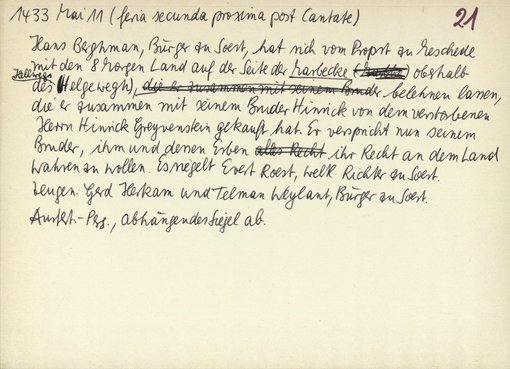 1433 Mai 11 (feria secunda proxima post Cantate)
21
Hans Berghman, Bürger zu Soest, hat sich vom Propst zu Meschede
mit den 8 Morgen Land auf der Seite der Marbecke (Marbke) oberhalb
des Helgewegh), die er zusammen mit seinem Bruder belehnen lassen,
die er zusammen mit seinem Bruder Hinrick von dem verstorbenen
Herrn Hinrick Greyvenstein gekauft hat. Er verspricht nun seinem
Bruder, ihm und dessen Erben alles Recht ihr Recht an dem Land
wahren zu wollen. Es siegelt Evert Roest, weltl. Richter zu Soest.
Zeugen: Gerd Herkam und Telman Weylant, Bürger zu Soest.
Ausfert.-Perg., abhängendes Siegel ab.